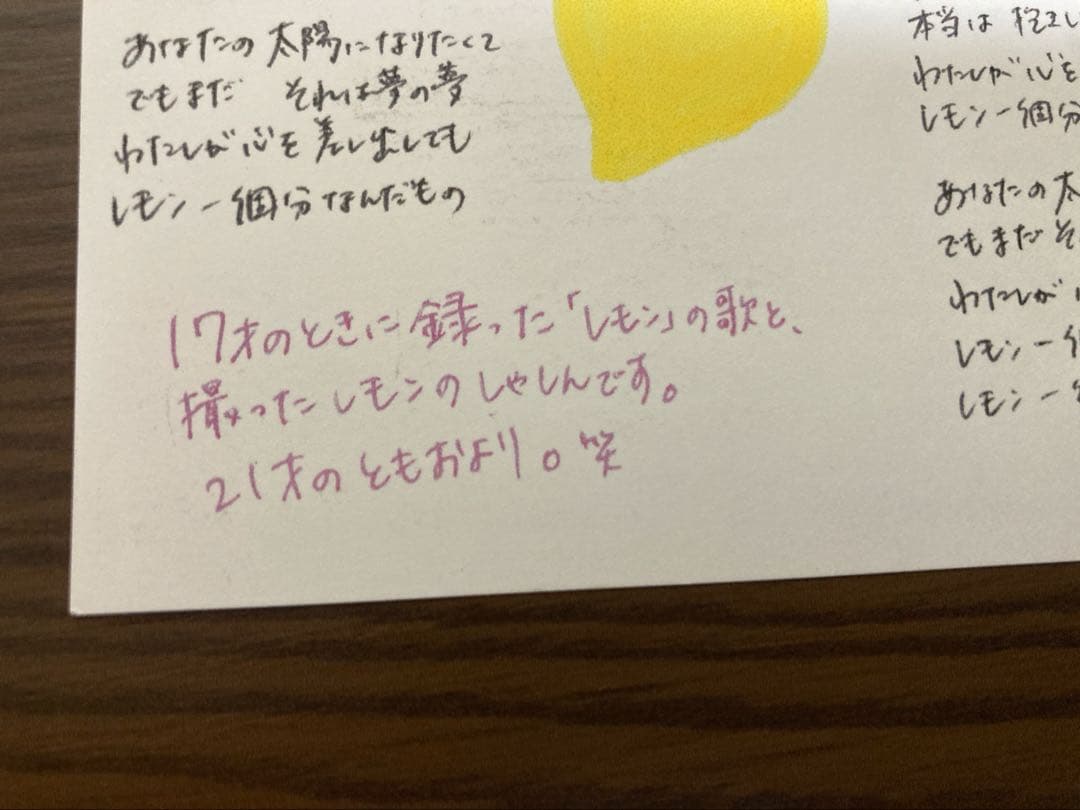 あなたの 太陽になりたくて
でもまだ それは夢の夢
わたしが心を 差し出しても
レモン一個分なんだもの
17才のときに録った「レモン」の歌と、
撮ったレモンのしゃしんです。
21才のともおより。笑
本当は 抱きし
わたしが心を
レモン一個分
あなたの太
でもまだ そ
わたしが
レモン一個
レモン一